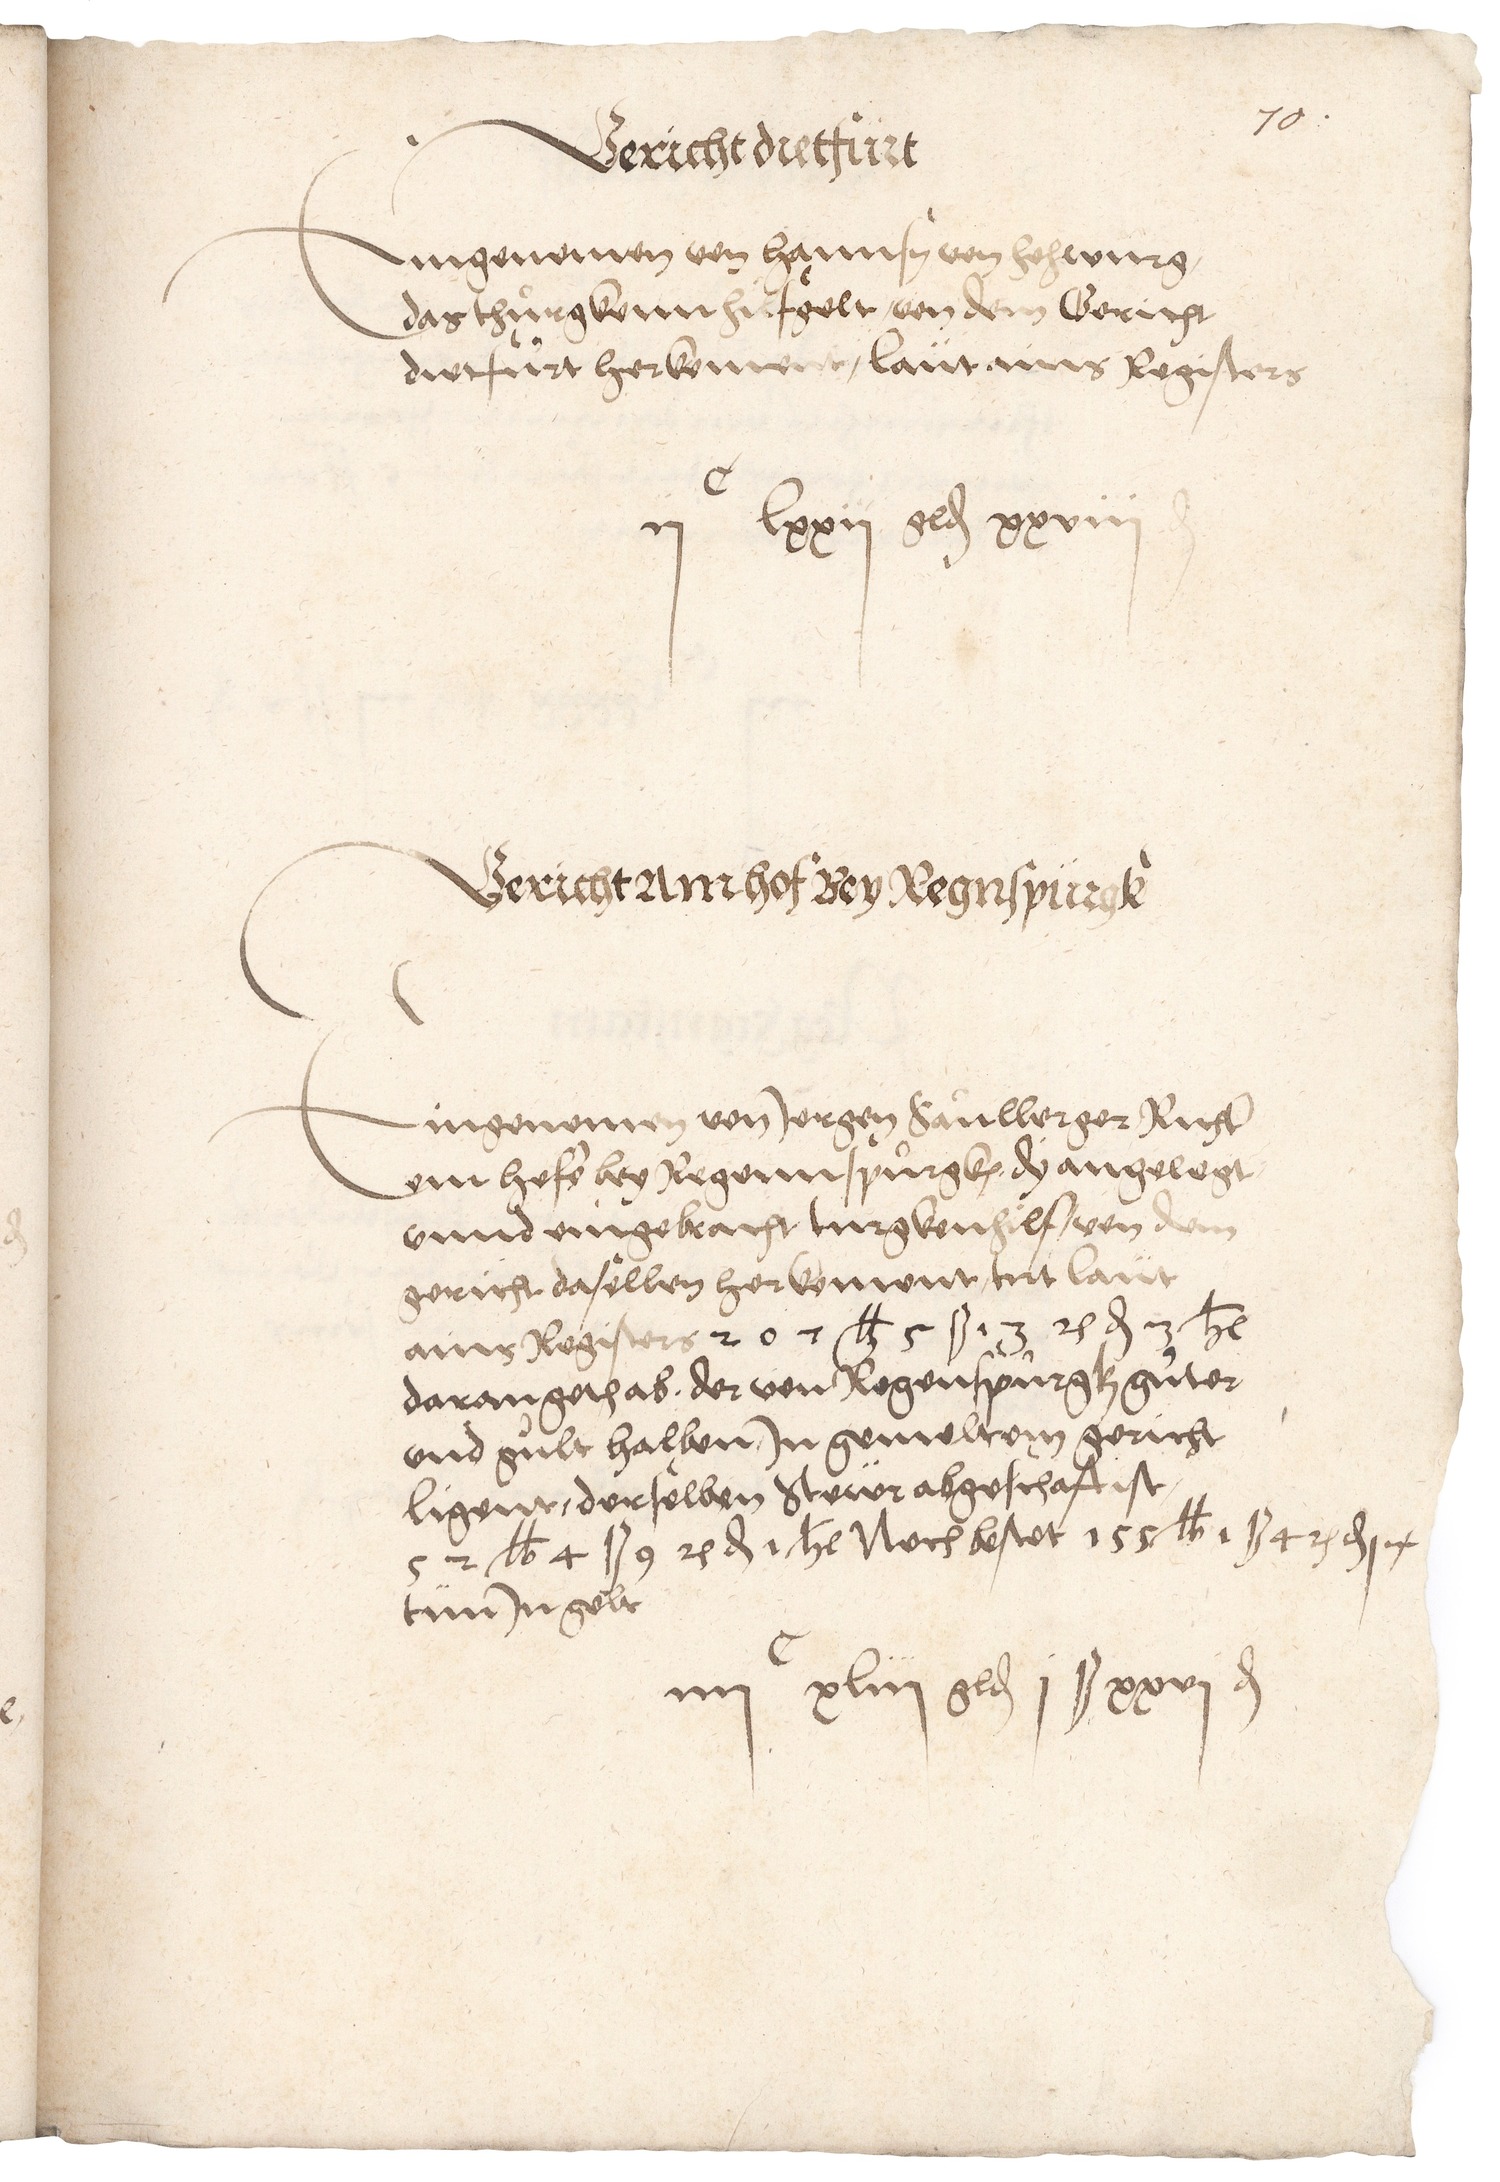 70.
Gericht dietfürt
Eingenomen von hannsn von hohwurg,
das thürgkenn hilfgelt, von dem Gericht
dietfürt herkoment, laüt ains Registers
ij C lxxij gld xxviij d
Gericht Am hof Bey Regnspürgk
Eingenomen von Jorgen Säullberger Richter
am hofe bey Regennspürgk, dy angelegt
vnnd eingebracht turgkenhilf, von dem
gericht daselben herkoment, tut laüt
ains Registers 207 lb 5 ß 13 d 3 hl
daran geth ab. der von Regenspürgk güter
vnd gült halben, Jn gemeltem gericht
ligent, derselben Steür abgeschafft ist,
52 lb 4 ß 9 d 1 hl Noch bestet 155 lb 1 ß 4 d
tün Jn gelt
iiij C xliij gld j ß xxvj d